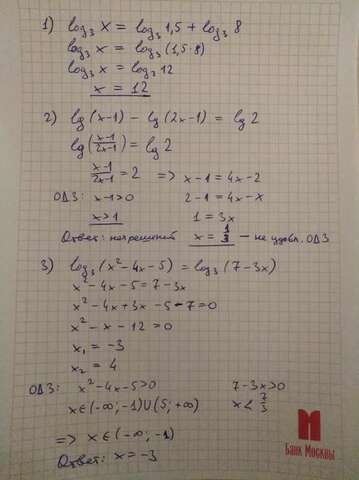 1) log₃ x = log₃ 1,5 + log₃ 8
log₃ x = log₃ (1,5 · 8)
log₃ x = log₃ 12
x = 12
2) lg (x-1) - lg (2x-1) = lg 2
lg ((x-1)/(2x-1)) = lg 2
(x-1)/(2x-1) = 2 => x-1 = 4x-2
ОДЗ: x-1>0 2-1 = 4x-x
x>1 1 = 3x
Ответ: нет решений x = 1/3 — не удовл. ОДЗ
3) log₃ (x²-4x-5) = log₃ (7-3x)
x²-4x-5 = 7-3x
x²-4x+3x-5-7=0
x²-x-12=0
x₁ = -3
x₂ = 4
ОДЗ: x²-4x-5>0 7-3x>0
x∈(-∞;-1)∪(5;+∞) x < 7/3
=> x∈(-∞;-1)
Ответ: x=-3
Банк Москвы